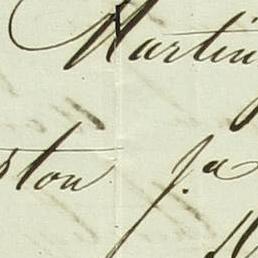 Martin
ston Ja